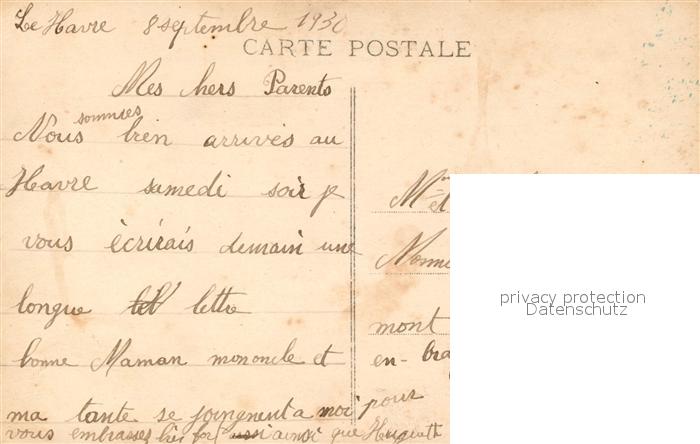 Le Havre 8 septembre 1930
CARTE POSTALE
Mes hers Parents
sommes
Nous bien arrivés au
Havre samedi soir je
vous écrirais demain une
longue lettre
bonne Maman mononcle et
ma tante se joingnent a moi pour
vous embrasser bien fort aussi ainsi que
Mme
et
mont
en-bra
privacy protection
Datenschutz